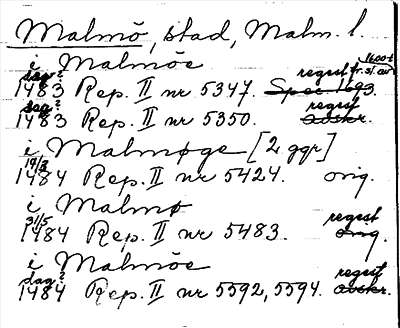 Malmö, stad, Malm. l.
i Malmöe
dag? regest 1600-t
1483 Rep. II nr 5347. Spec 1693.
dag? regest
1483 Rep. II nr 5350. avskr.
i Malmøge [2 ggr]
19/3
1484 Rep. II nr 5424. orig.
i Malmø
31/5 regest
1484 Rep. II nr 5483. orig.
i Malmöe
dag? regest
1484 Rep. II nr 5592, 5594. avskr.